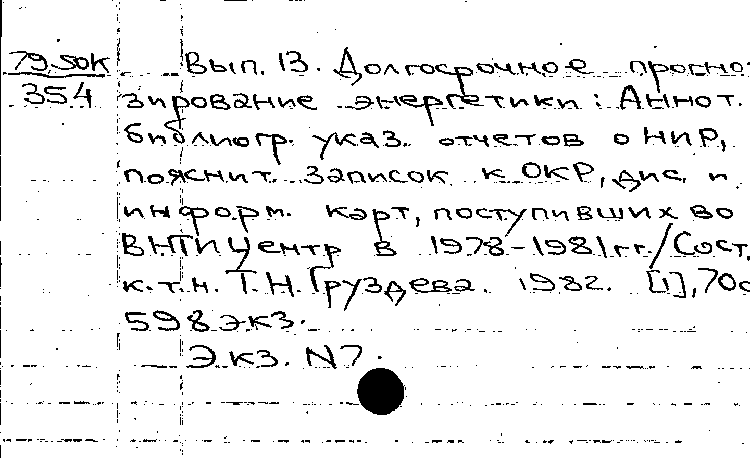 79.50к
354
Вып. 13. Долгосрочное прогно-
зирование энергетики: Аннот.
библиогр. указ. отчетов о НИР,
пояснит. записок к ОКР, дис. и
информ. карт, поступивших во
ВНТИЦентр в 1978-1981гг./Сост.
к.т.н. Т.Н. Груздева. 1982. [1], 70с
598 экз.
Экз. N7.